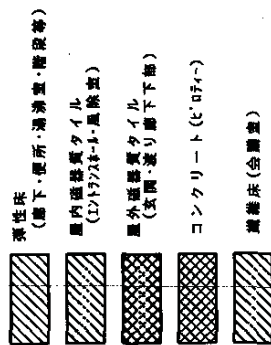 弾性床
(廊下・便所・湯沸室・階段等)
屋内磁器質タイル
(エントランスホール・風除室)
屋外磁器質タイル
(玄関・渡り廊下下部)
コンクリート(ピロティー)
繊維床(会議室)